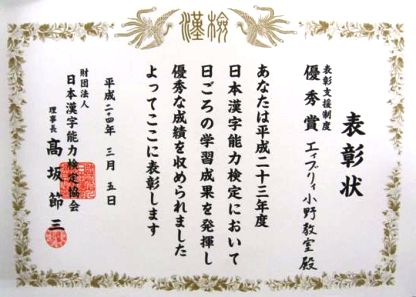 漢検
表彰状
表彰支援制度
優秀賞 エイブリィ小野教室殿
あなたは平成二十三年度
日本漢字能力検定において
日ごろの学習成果を発揮し
優秀な成績を収められました
よってここに表彰します
平成二四年 三月 五日
財団法人
日本漢字能力検定協会
理事長 髙坂節三